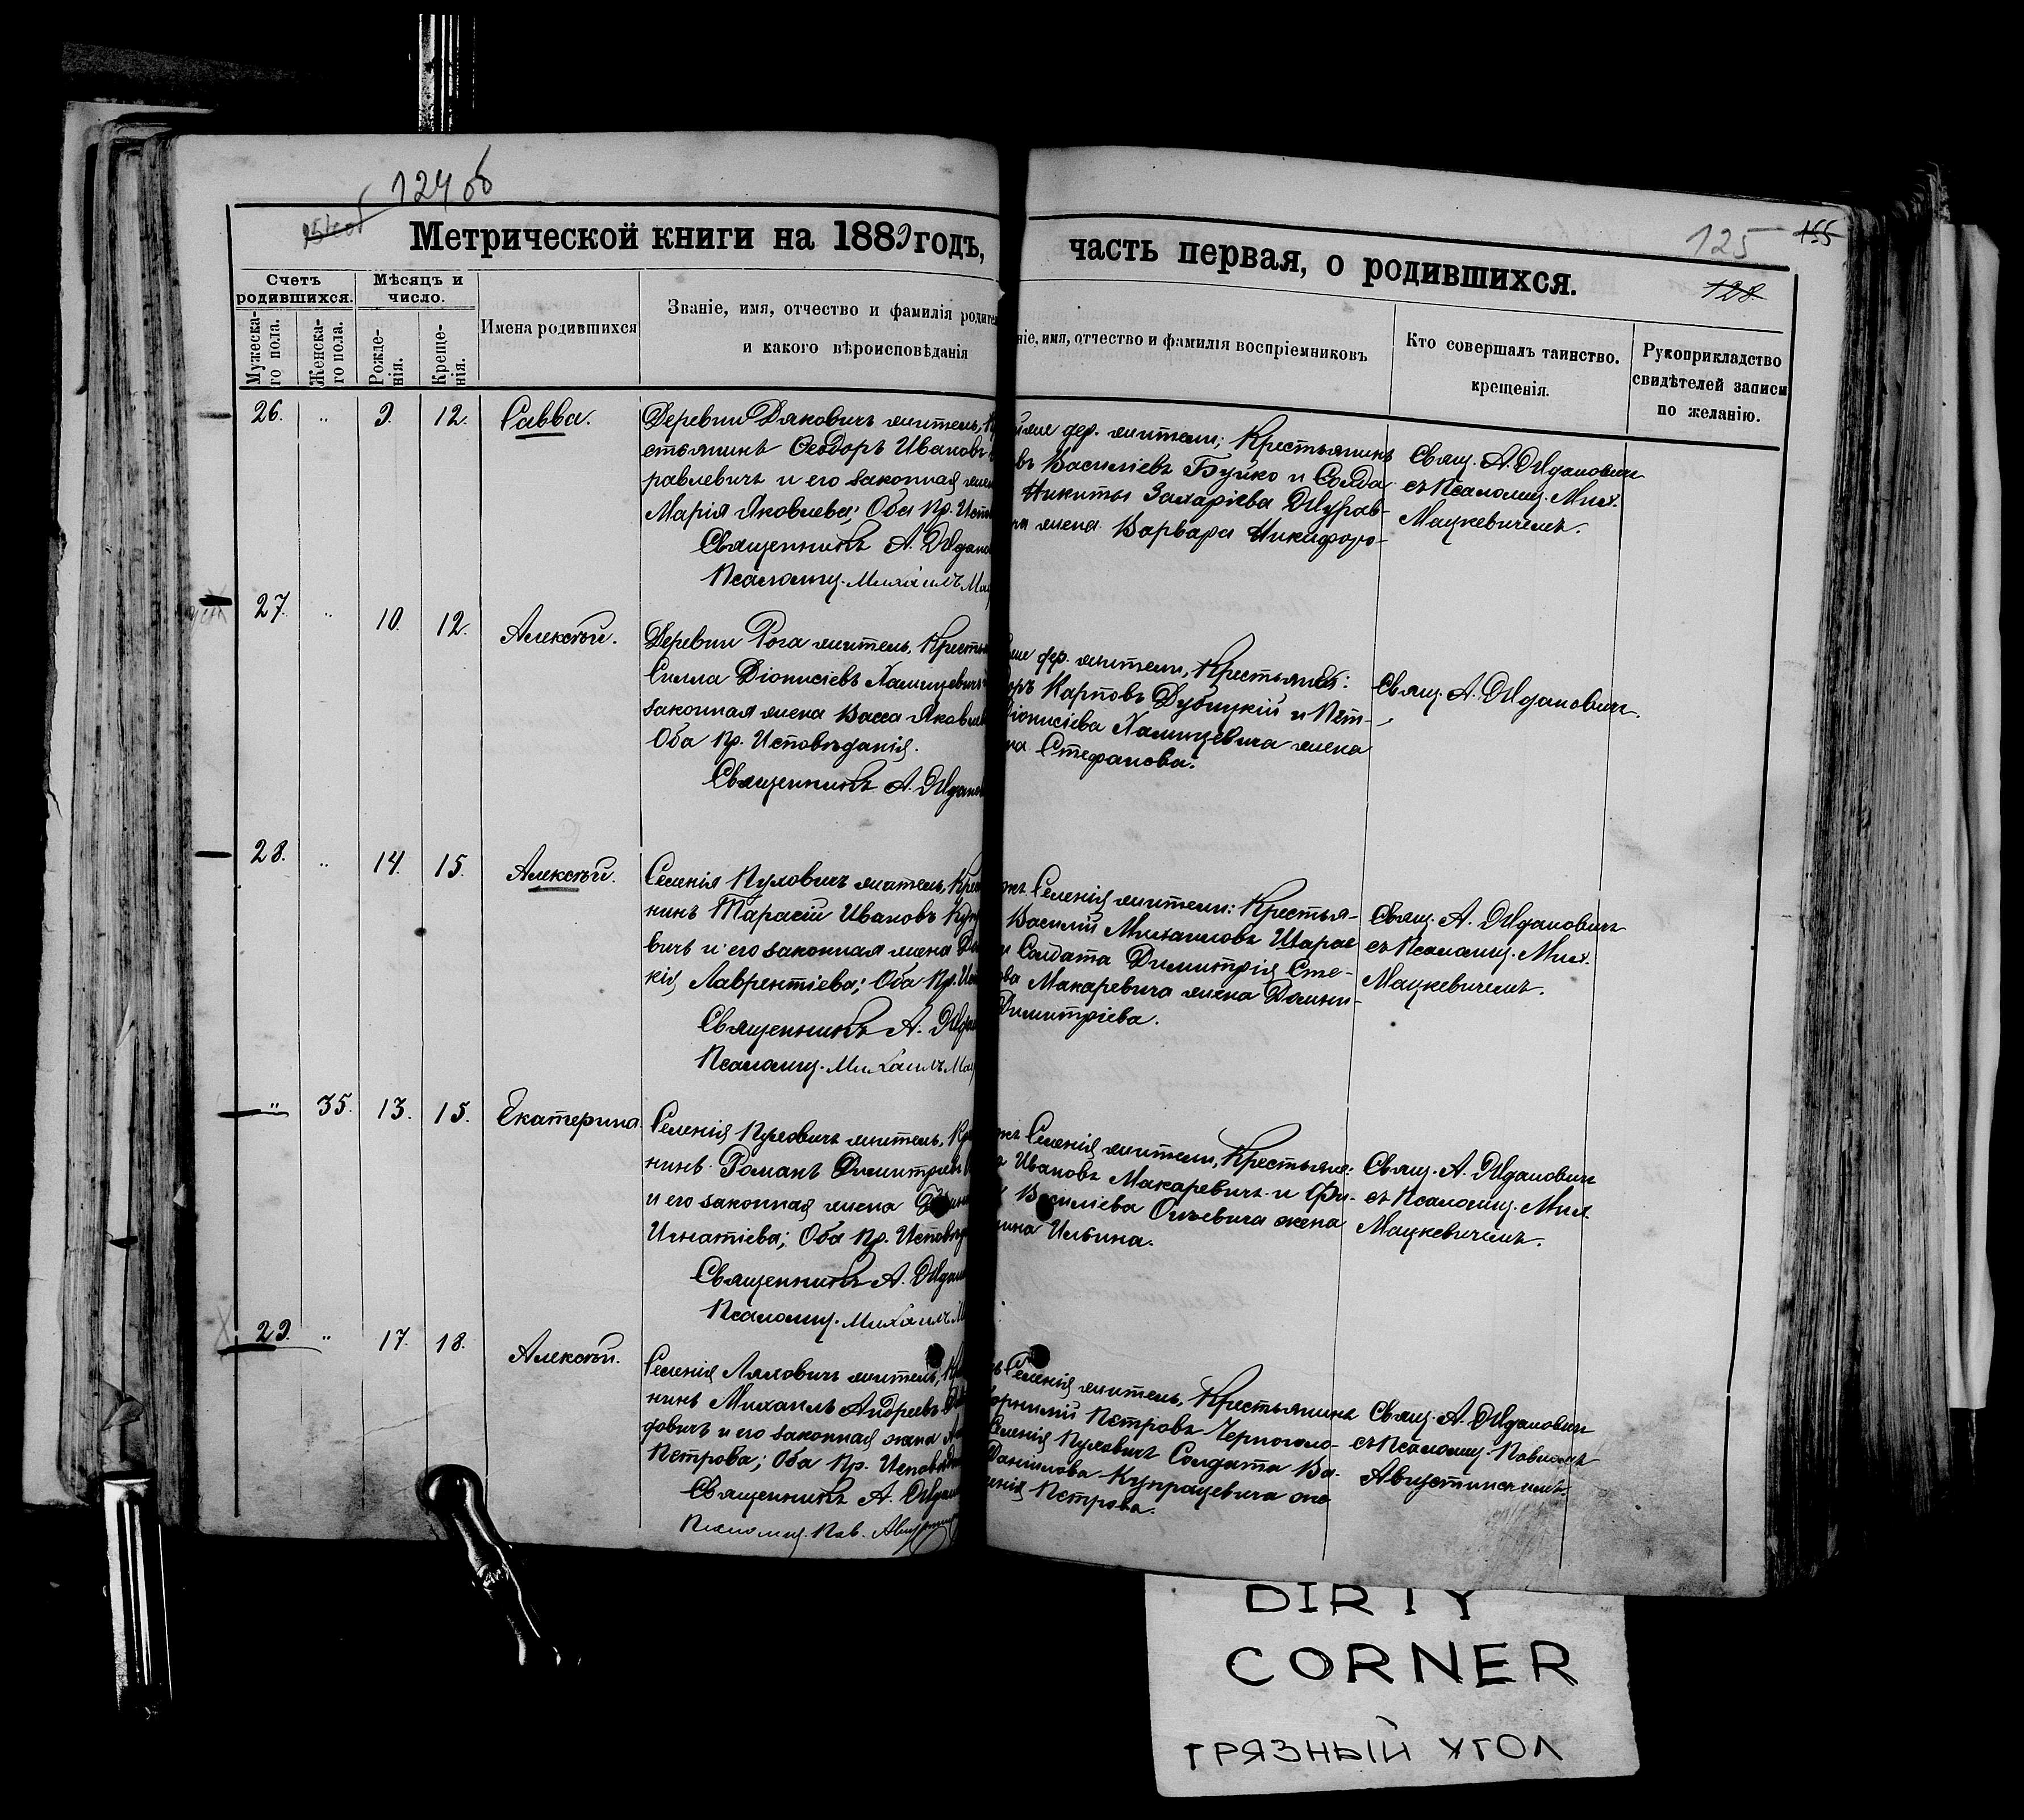 124 об
125
155
128.
Метрической книги на 1889 годъ, часть первая, о родившихся.
Счетъ родившихся.
Мужеска-го пола.
Женска-го пола.
Мѣсяцъ и число.
Рожде-нія.
Креще-нія.
Имена родившихся
Званіе, имя, отчество и фамилія родите
и какого вѣроисповѣданія
ніе, имя, отчество и фамилія воспріемниковъ
Кто совершалъ таинство.
крещенія.
Рукоприкладство
свидѣтелей записи
по желанію.
26. „ 9. 12. Савва.
Деревни Дяковичъ житель, Кр
естьянинъ Ѳеодоръ Ивановъ
равлевичъ и его законная жен
Марія Яковлева; Оба Пр. Испо
Священникъ А. Ждано
Псаломщ. Михаилъ Мац
дер. жители; Крестьянинъ
въ Василіевъ Буйко и Солда
Никиты Захаріева Журав-
жена Варвара Никифоро-
Свящ. А. Жданович
съ Псаломщ. Мих.
Мацкевичемъ.
27. „ 10. 12. Алексѣй.
Деревни Рога житель, Кресть
Силла Діонисіевъ Халицевичъ
законная жена Васса Яковле
Оба Пр. Исповѣданія.
Священникъ А. Ждано
дер. жители, Крестьяне:
оръ Карповъ Дубицкій и Пет-
іонисіева Халицевича жена
на Стефанова.
Свящ. А. Жданович.
28. „ 14. 15. Алексѣй.
Селенія Пуховичъ житель, Крес
нинъ Тарасій Ивановъ
вичъ и его законная жена До
кія Лаврентіева; Оба Пр. Исп
Священникъ А. Ждан
Псаломщ. Михаилъ Мац
Селенія жители: Крестья-
Василій Михаиловъ Шарае
и Солдата Димитрія Сте-
ова Макаревича жена Домни-
Димитріева.
Свящ. А. Жданович
съ Псаломщ. Мих.
Мацкевичемъ.
„ 35. 13. 15. Екатерина.
Селенія Пуховичъ житель, Кре
нинъ Романъ Димитріевъ
и его законная жена
Игнатіева; Оба Пр. Исповѣд
Священникъ А. Ждан
Псаломщ. Михаилъ М
Селенія жители, Крестьяне:
Ивановъ Макаревичъ и Фи-
Василіева Ошевича жена
ина Ильина.
Свящ. А. Жданович
съ Псаломщ. Мих.
Мацкевичемъ.
29. „ 17. 18. Алексѣй.
Селенія Ляховичъ житель, Кре
нинъ Михаилъ Андреевъ
довичъ и его законная жена
Петрова; Оба Пр. Исповѣд
Священникъ А. Ждан
Псаломщ. Пав. Августин
Селенія житель, Крестьянинъ
орнилій Петровъ Черноголо-
Селенія Пуховичъ Солдата Ва-
Даніилова Купрацевича же
енія Петрова.
Свящ. А. Жданович
съ Псаломщ. Павломъ
Августинчикомъ.
DIRTY
CORNER
ГРЯЗНЫЙ УГОЛ